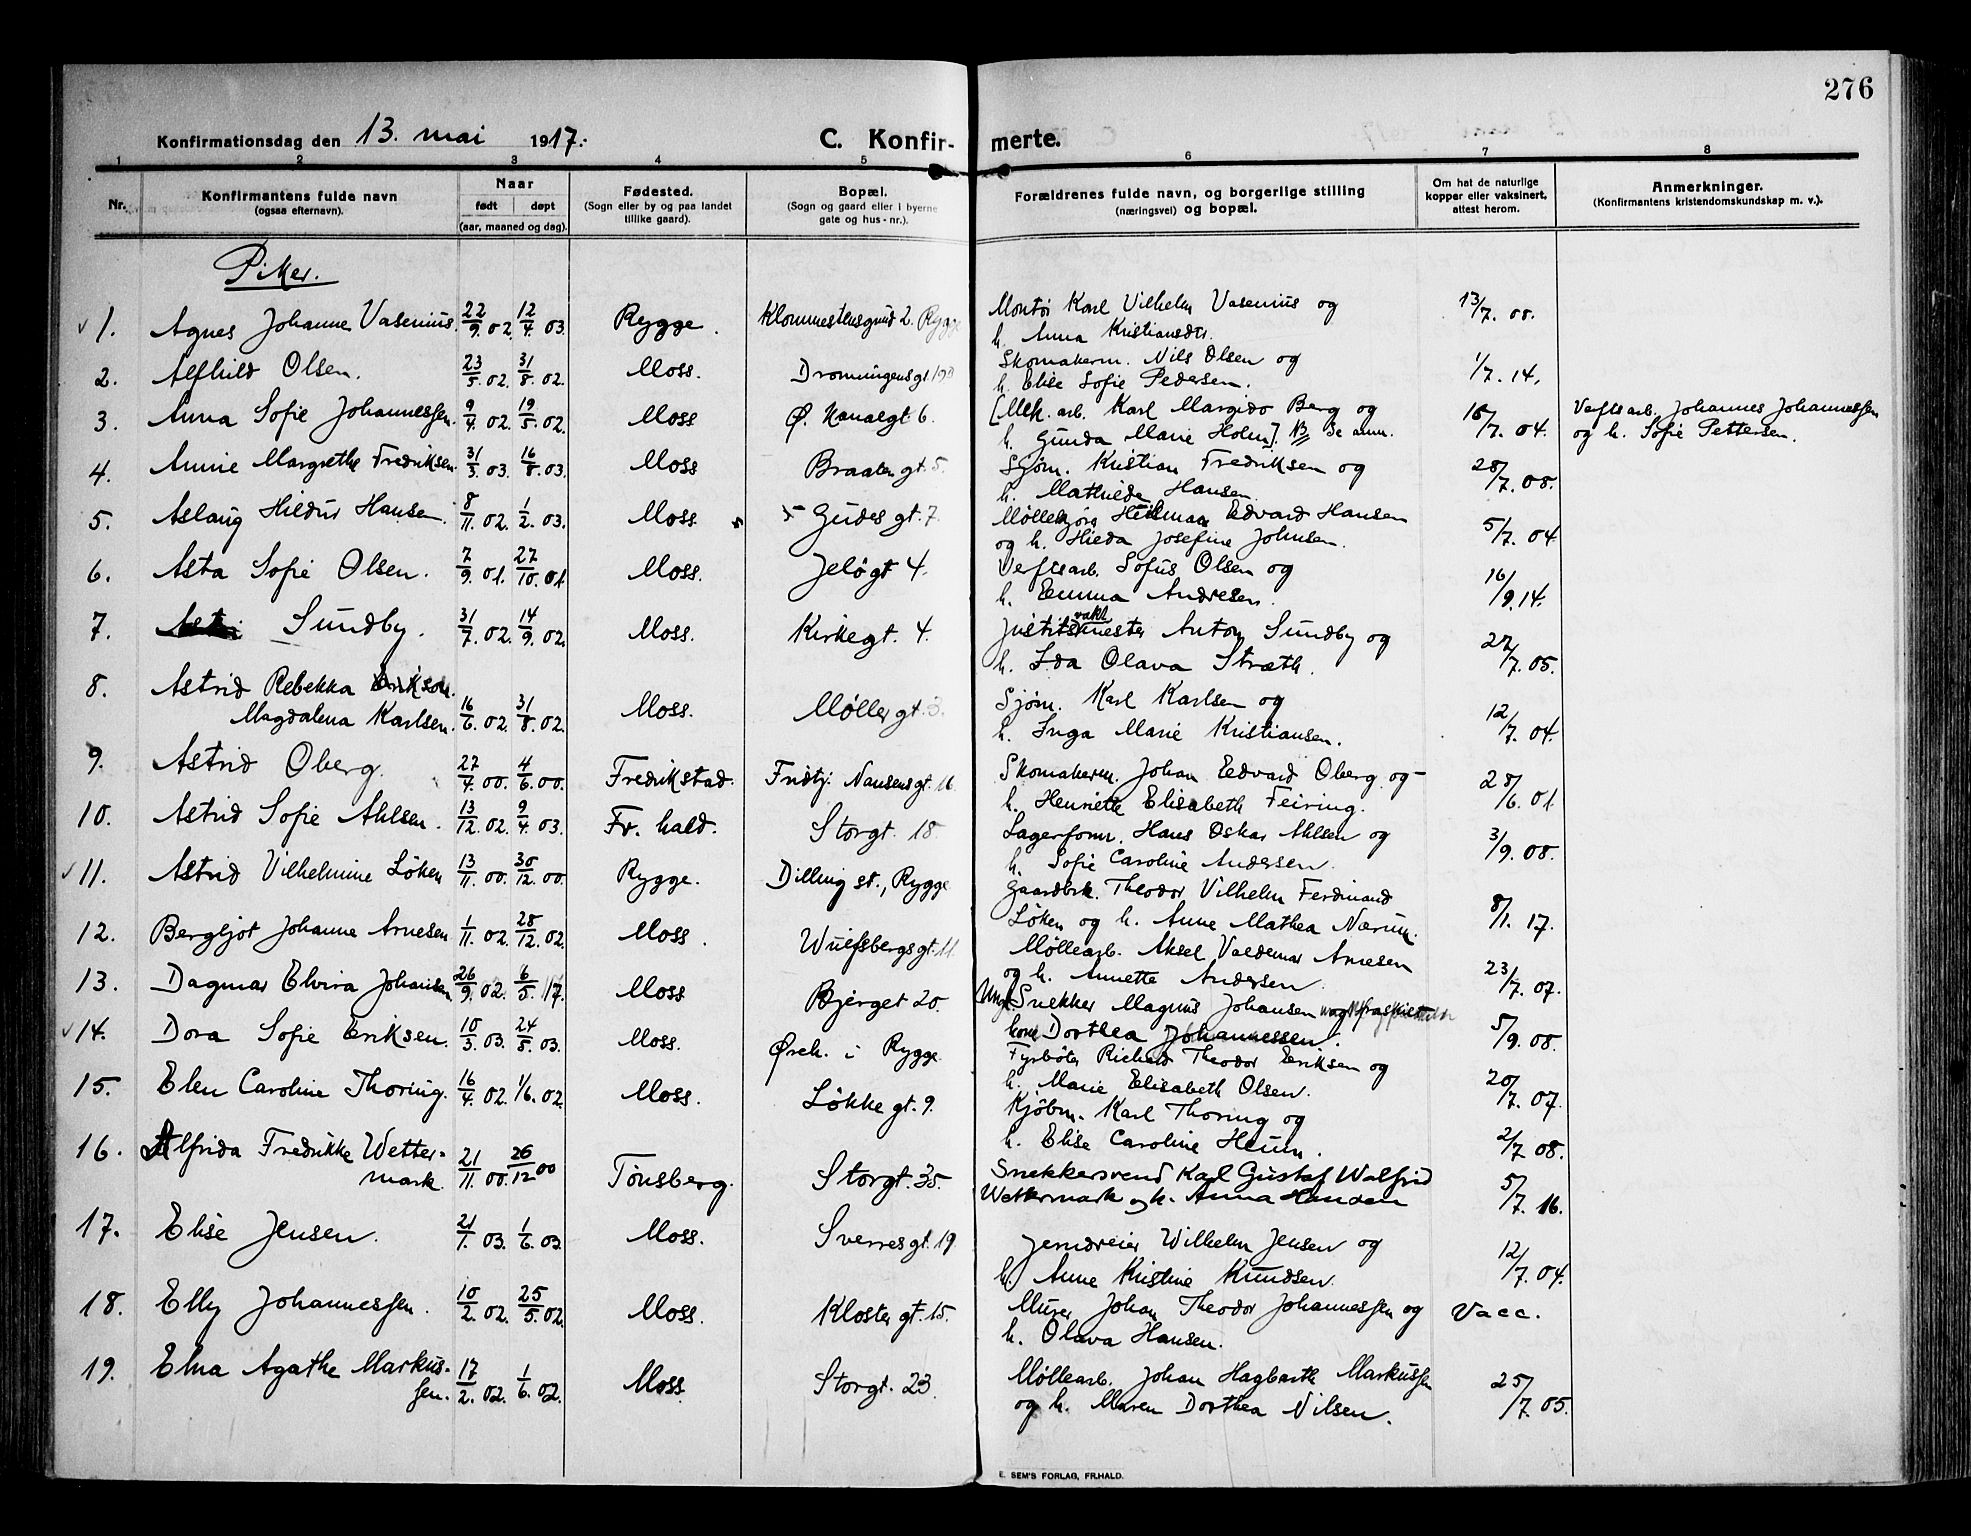 276
Konfirmationsdag den 13. mai 1917. C. Konfir- merte.
1 2 3 4 5 6 7 8
Nr. Konfirmantens fulde navn (ogsaa efternavn). Naar født døpt (aar, maaned og dag). Fødested. (Sogn eller by og paa landet tillike gaard). Bopæl. (Sogn og gaard eller i byerne gate og hus-nr.). Forældrenes fulde navn, og borgerlige stilling (næringsvei) og bopæl. Om hat de naturlige kopper eller vaksinert, attest herom. Anmerkninger. (Konfirmantens kristendomskundskap m. v.).
Piker.
1. Agnes Johanne Vasenius. 22/9. 02. 12/4. 03. Rygge. Klommestensgrud 2. Rygge Montør Karl Vilhelm Vasenius og 13/7. 08.
h. Anna Kristiansdtr.
2. Alfhild Olsen. 23/5. 02. 31/8. 02. Moss. Dronningensgt. Skomakerm. Nils Olsen og 1/7. 14.
h. Elise Sofie Pedersen.
3. Anna Sofie Johannessen. 9/4. 02. 19/5. 02. Moss Ø. Kanalgt 6. [Mek. arb. Karl Margido Berg og 16/7. 04. Verftsarb. Johannes Johannessen
h. Gunda Marie Holm]. NB se anm. og h. Sofie Pettersen.
4. Annie Margrethe Fredriksen. 31/3. 03. 16/8. 03. Moss Braaten gt. 5. Sjøm. Kristian Fredriksen og 28/7. 08.
h. Mathilde Hansen.
5. Aslaug Hildur Hansen. 8/11. 02. 1/2. 03. Moss. Gudes gt. 7. Møllekjøre Hilmar Edvard Hansen 5/7. 04
og h. Hilda Josefine Johnsen.
6. Asta Sofie Olsen. 7/9. 01. 27/10. 01. Moss. Jeløgt 4. Veftsarb. Sofus Olsen og 16/9. 14.
h. Emma Andresen.
7. Astri Sundby. 31/7. 02. 14/9. 02. Moss. Kirkegt. 4. Justitsvaktmester Anton Sundby og 27/7. 05.
h. Ida Olava Stræth.
8. Astrid Rebekka Erikson.
Magdalena Karlsen. 16/6. 02. 31/8. 02. Moss. Møllergt. 3. Sjøm. Karl Karlsen og 12/7. 04.
h. Inga Marie Kristiansen.
9. Astrid Oberg. 27/4. 00. 4/6. 00. Fredrikstad. Fridtj. Nansensgt. 16 Skomakerm. Johan Edvard Oberg og 28/6. 01.
h. Henriette Elisabeth Feiring.
10. Astrid Sofie Ahlsen. 13/12. 02. 9/4. 03. Fr. hald. Storgt. 18 Lagerform. Hans Oskar Ahlsen og 3/9. 08.
h. Sofie Caroline Andersen.
11. Astrid Vilhelmine Løken 13/11. 00. 30/12. 00. Rygge. Dilling st., Rygge Gaardbrk. Theodor Vilhelm Ferdinand 8/1. 17.
Løken og h. Anne Mathea Nærum.
12. Bergljot Johanne Arnesen 1/11. 02. 28/12. 02. Moss. Wulfsbergsgt. 11. Møllearb. Aksel Valdemar Arnesen 23/7. 07.
og h. Annette Andersen.
13. Dagmar Elvira Johansen 26/9. 02. 6/5. 17. Moss Bjerget 20. Ungk. Snekker Magnus Johansen 5/9. 08.
Dorthea Johannessen.
14. Dora Sofie Eriksen. 10/3. 03. 24/5. 03. Moss. Øreh. i Rygge Fyrbøter Richard Theodor Eriksen og 20/7. 07.
h. Marie Elisabeth Olsen.
15. Elen Caroline Thoring. 16/4. 02. 1/6. 02. Moss. Løkke gt. 9. Kjøbm. Karl Thoring og 2/7. 08.
h. Elise Caroline Heum.
16. Alfrida Fredrikke Wetter-
mark. 21/11. 00. 26/12 00 Tønsberg. Storgt. 35. Snekkersvend Karl Gustaf Walfrid 5/7. 16.
Wettermark og h. Anna Handen
17. Elise Jensen. 21/1. 03. 1/6. 03. Moss. Sverresgt. 19. Jerndreier Wilhelm Jensen og 12/7. 04.
h. Anne Kristine Knudsen.
18. Elly Johannessen. 10/2. 02. 25/5. 02. Moss. Kloster gt. 15. Murer Johan Theodor Johannessen og Vacc.
h. Olava Hansen.
19. Elna Agathe Markus-
sen. 17/2. 02. 1/6. 02. Moss. Storgt. 23. Møllearb. Johan Hagbarth Markussen 25/7. 05.
og h. Maren Dorthea Nilsen.
E. SEM'S FORLAG, FR.HALD.